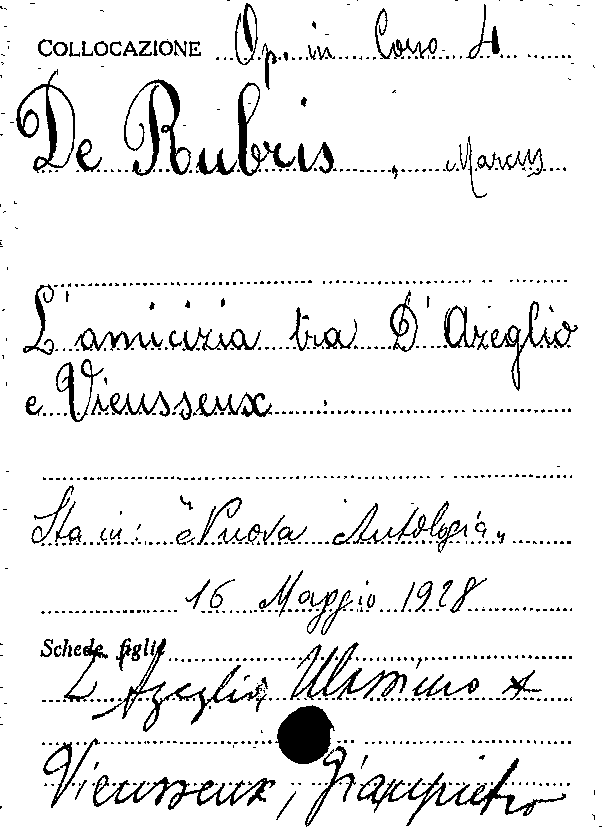 COLLOCAZIONE Op. in Corso 4
De Rubris, Marcus
L'amicizia tra D'Azeglio
e Vieusseux.
Sta in: "Nuova Antologia"
16 Maggio 1928
Schede figlie
D'Azeglio, Massimo x
Vieusseux, Giampietro